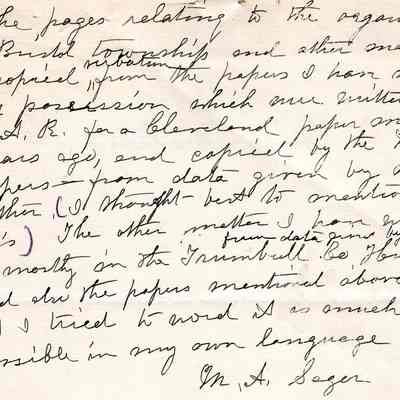 the pages relating to the organ
Bristol township and other ma
verbatim
copied, from the papers I have
possession which were written
A. R. for a Cleveland paper
ars ago, and copied by the
pers — from data given by
ther. (I thought best to mention
is) The other matter I have
from data given by
mostly in the Trumbull Co His
d also the papers mentioned above
I tried to word it as much
ssible in my own language
M. A. Sager